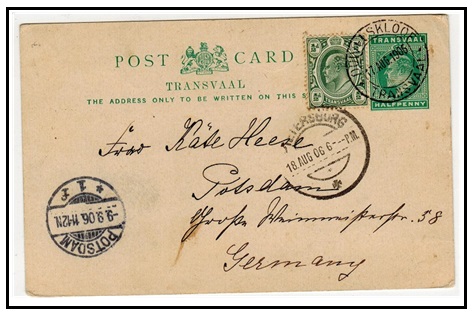 POST CARD
TRANSVAAL
THE ADDRESS ONLY TO BE WRITTEN ON THIS
TRANSVAAL
HALFPENNY
DUIVELSKLOOF
17 AUG 1906
TRANSVAAL
PIETERSBURG
18 AUG 06 6 - P.M.
Frau Käte Heese
Potsdam
Große Weinmeisterstr. 58
Germany
POTSDAM
* 1 f
-9.9.06.11-12N.